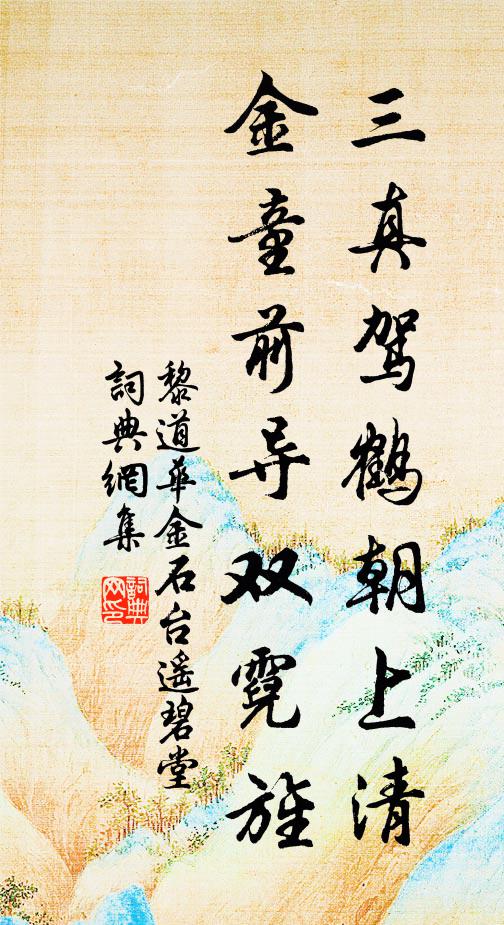 三真驾鹤朝上清
金童前导双霓旌
黎道华金石台遥碧堂
詞典網集
詞典
网印